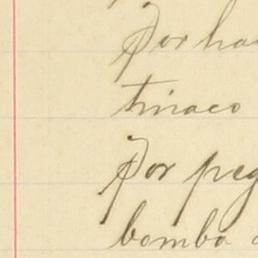 Por ha
tinaco
Por peg
bomba